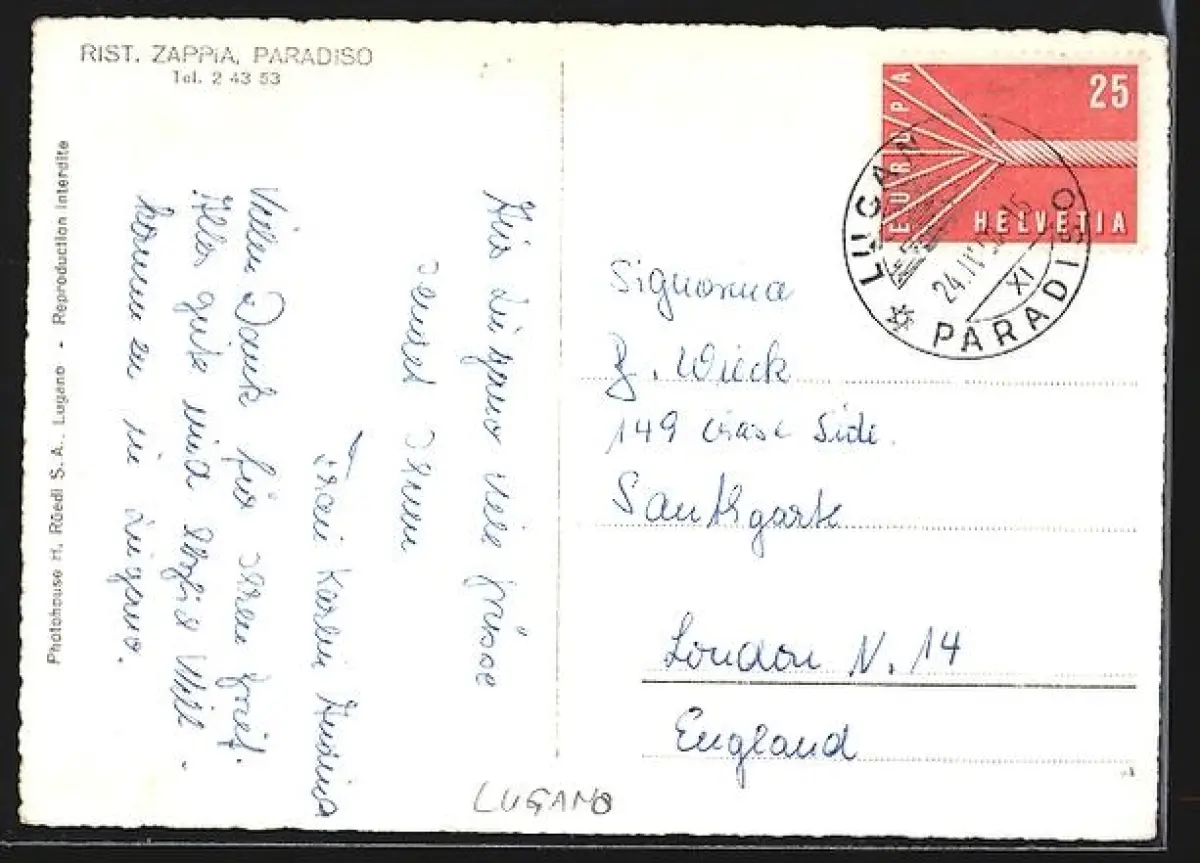 RIST. ZAPPIA, PARADISO
Tel. 2 43 53
Photohouse H. Rüedi S. A., Lugano - Reproduction interdite
Aus Lugano viele Grüsse
sendet Ihnen
Frau Karlin Andina
Vielen Dank für Ihren Brief.
Alles gute und
kommen zu in Lugano.
EUROPA
25
HELVETIA
LUGANO
PARADISO
24.IV
XI
Signorina
Wieck
149 Chase Side.
Southgate
London N. 14
England
LUGANO